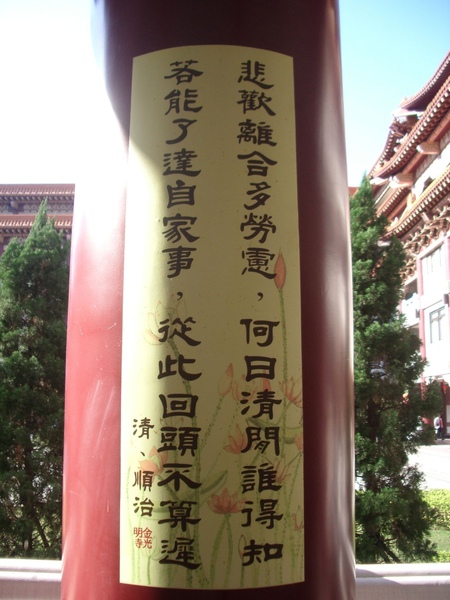 悲歡離合多勞慮，何日清閒誰得知
若能了達自家事，從此回頭不算遲
清、順治
金光明寺